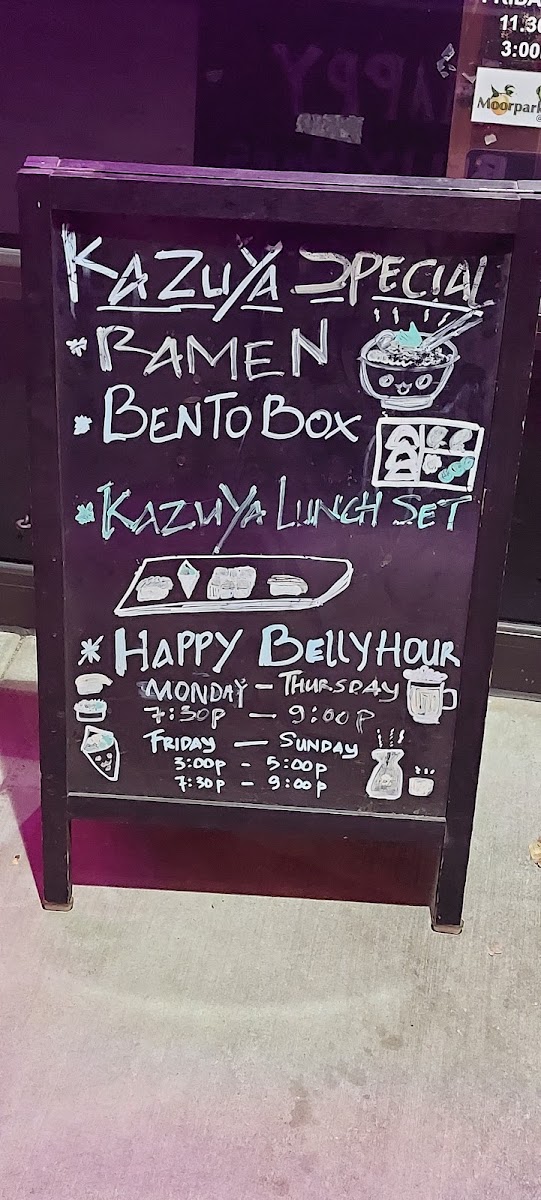 FRIDA
11.30
3:00
Moorpark
KAZUYA SPECIAL
* RAMEN
* BENTO BOX
* KAZUYA LUNCH SET
* HAPPY BELLY HOUR
MONDAY - THURSDAY
7:30p - 9:00p
FRIDAY - SUNDAY
3:00p - 5:00p
7:30p - 9:00p